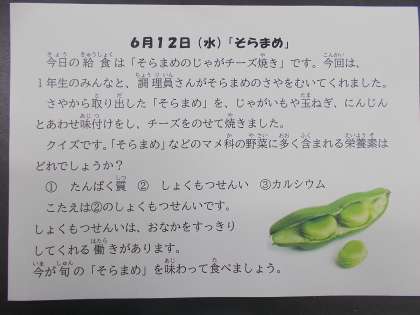 6月12日(水)「そらまめ」
今日の給食は「そらまめのじゃがチーズ焼き」です。今回は、
1年生のみんなと、調理員さんがそらまめのさやをむいてくれました。
さやから取り出した「そらまめ」を、じゃがいもや玉ねぎ、にんじん
とあわせ味付けをし、チーズをのせて焼きました。
クイズです。「そらまめ」などのマメ科の野菜に多く含まれる栄養素は
どれでしょうか?
① たんぱく質 ② しょくもつせんい ③カルシウム
こたえは②のしょくもつせんいです。
しょくもつせんいは、おなかをすっきり
してくれる働きがあります。
今が旬の「そらまめ」を味わって食べましょう。